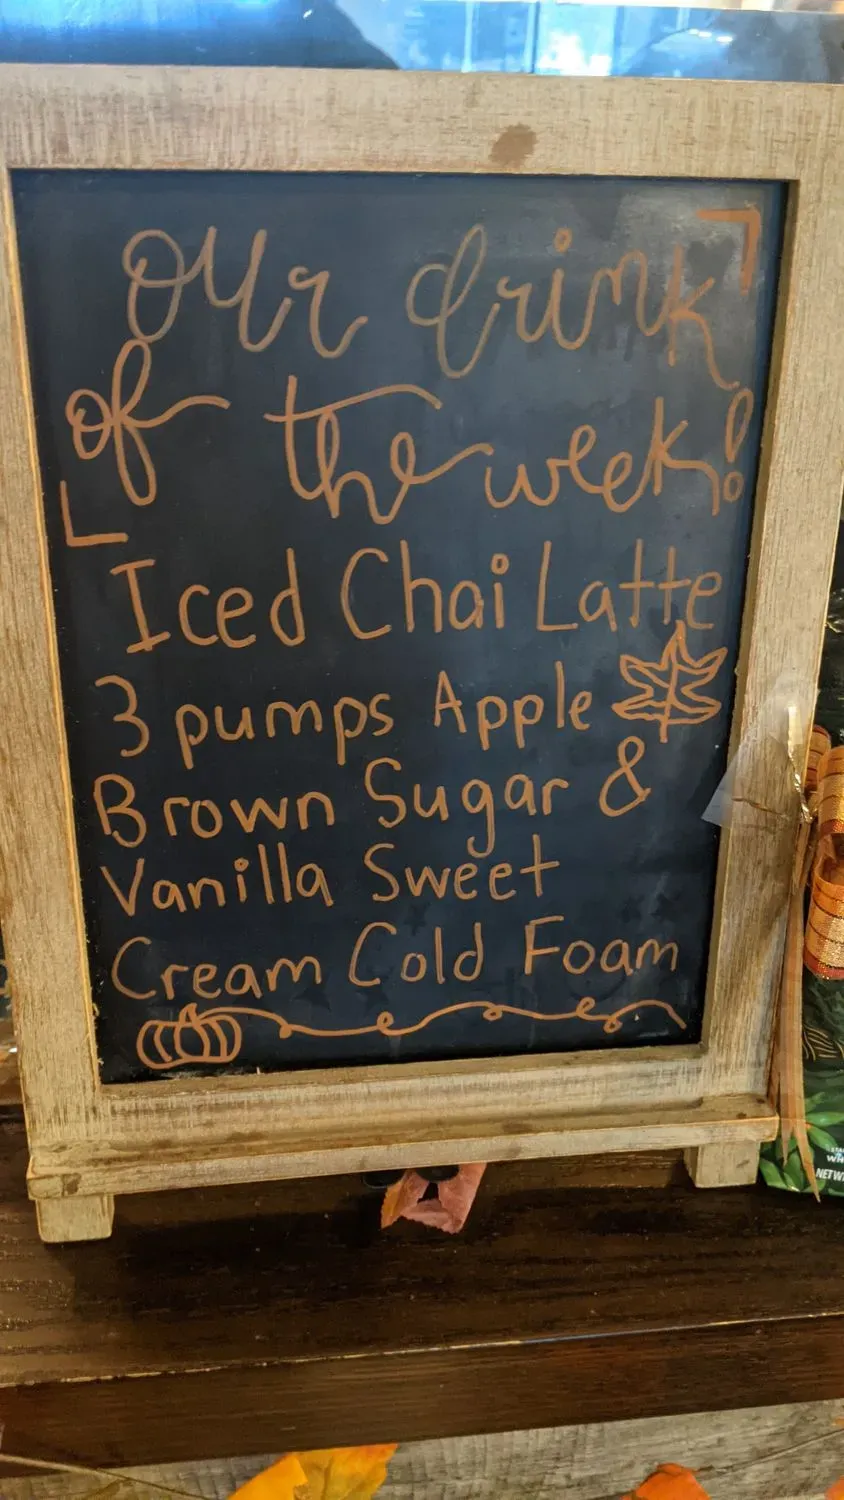 Our drink
of the week!
Iced Chai Latte
3 pumps Apple
Brown Sugar &
Vanilla Sweet
Cream Cold Foam
NET W